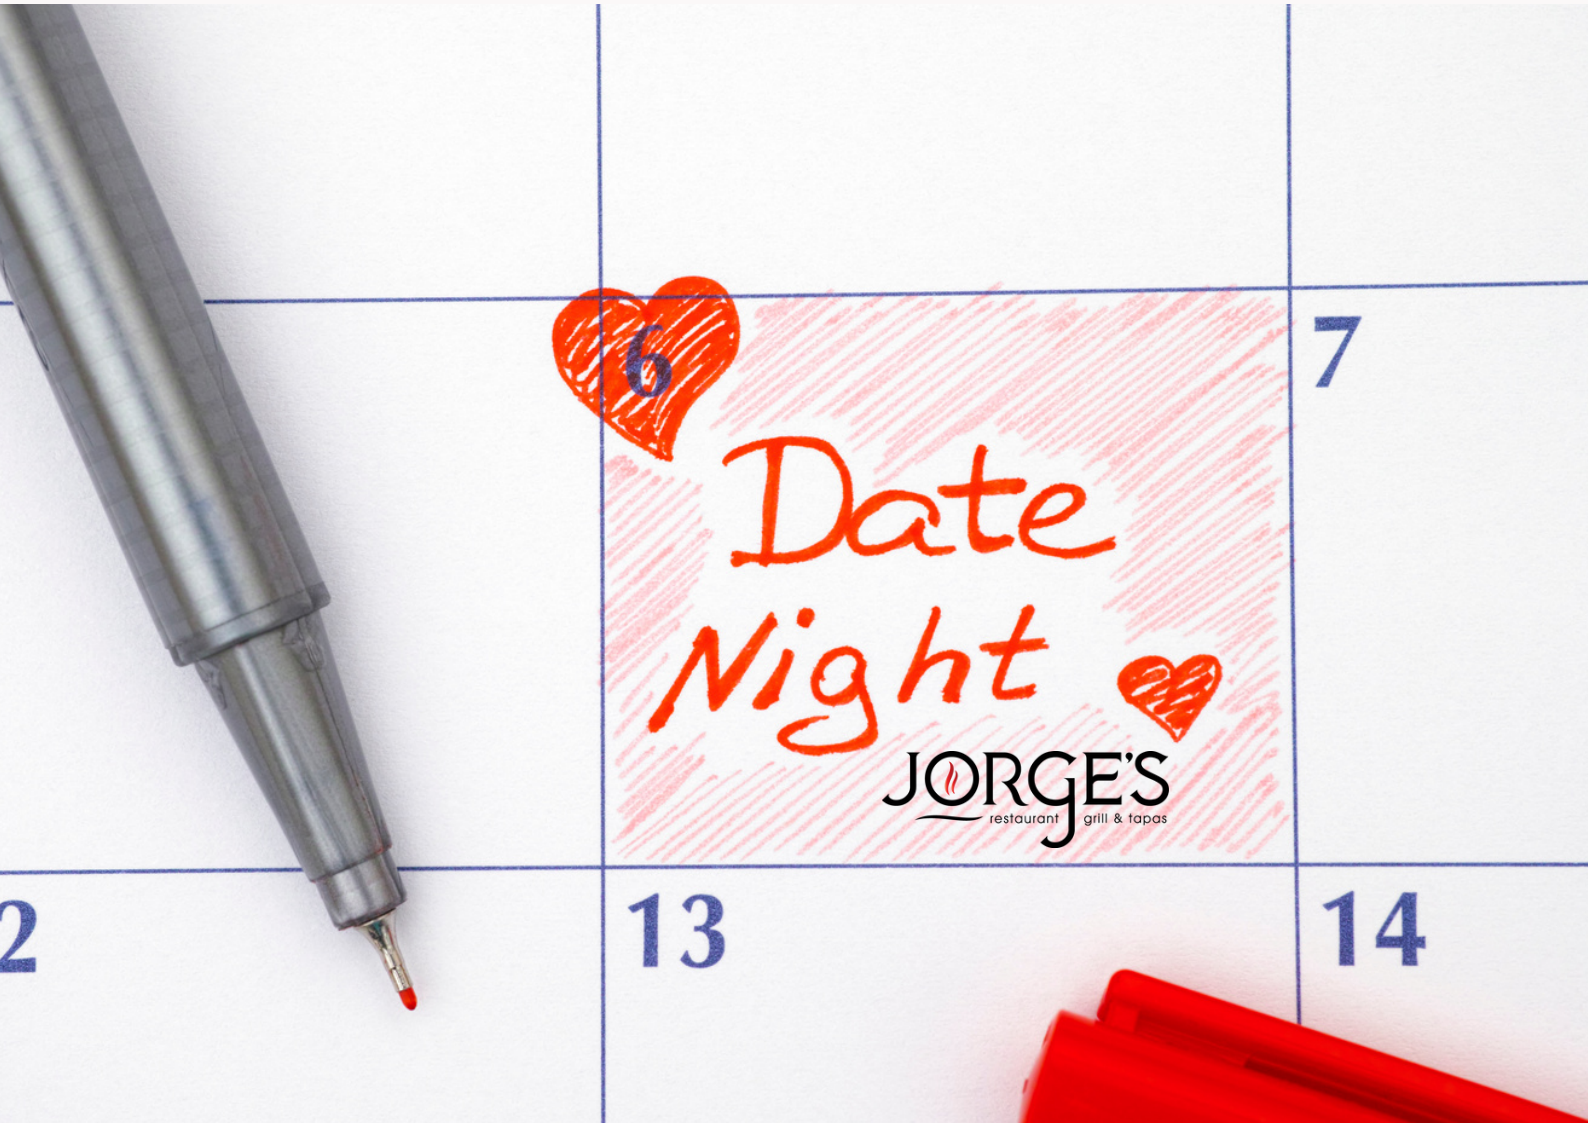 6
7
Date
Night
JORGE'S
restaurant grill & tapas
2
13
14